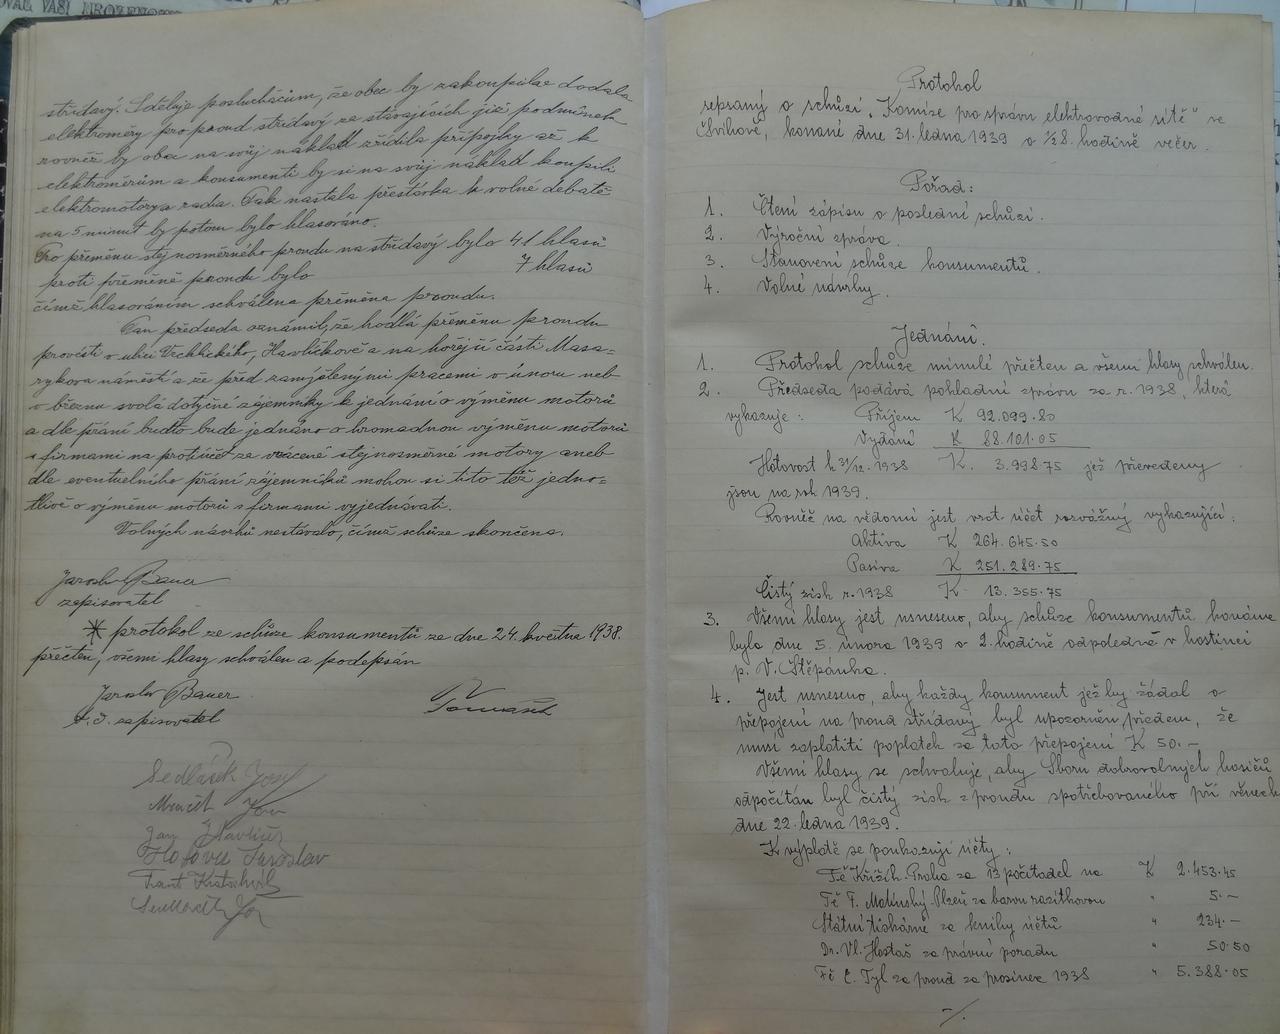 střídavý. Sděluje posluchačům, že obec by zakoupila a dodala
elektroměry pro proud střídavý za stávajících již podmínek
rovněž by obec na svůj náklad zřídila přípojky až k
elektroměrům a konsumenti by si na svůj náklad koupili
elektromotory a radia. Pak nastala přestávka k volné debatě
na 5 minut by potom bylo hlasováno.
Pro přeměnu stejnosměrného proudu na střídavý bylo 41 hlasů
proti přeměně proudu bylo 7 hlasů
čímž hlasováním schválena přeměna proudu.
Pan předseda oznámil, že hodlá přeměnu proudu
provésti v ulici Vrchlického, Havlíčkově a na hořejší části Masa-
rykova náměstí a že před zamýšlenými pracemi v únoru neb
v březnu svolá dotyčné zájemníky k jednání o výměnu motorů
a dle přání buďto bude jednáno o hromadnou výměnu motorů
s firmami na protiúčet za vrácené stejnosměrné motory aneb
dle eventuelního přání zájemníků mohou si tito též jedno-
tlivě o výměnu motorů s firmami vyjednávati.
Volných návrhů nestávalo, čímž schůze skončena.
Jaroslav Bauer
zapisovatel
protokol ze schůze konsumentů ze dne 24. května 1938.
přečten, všemi hlasy schválen a podepsán
Jaroslav Bauer
t. č. zapisovatel
Tomášek
Sedláček Josef
Jan
Jan Havlíček
Jaroslav
Frant
Protokol
sepsaný o schůzi „Komise pro správu elektrovodné sítě" ve
Švihově, konané dne 31. ledna 1939 o ½8. hodině večer.
Pořad:
1. Čtení zápisu o poslední schůzi.
2. Výroční zpráva.
3. Stanovení schůze konsumentů.
4. Volné návrhy.
Jednání.
1. Protokol schůze minulé přečten a všemi hlasy schválen.
2. Předseda podává pokladní zprávu za r. 1938, která
vykazuje: Příjem K 92.099.80
Vydání K 88.101.05
Hotovost k 31/12. 1938 K. 3.998.75 jež převedeny
jsou na rok 1939.
Rovněž na vědomí jest vzat účet rozvážný vykazující:
Aktiva K 264.645.50
Pasiva K 251.289.75
Čistý zisk r. 1938 K 13.355.75
3. Všemi hlasy jest usneseno, aby schůze konsumentů konána
byla dne 5. února 1939 o 2. hodině odpoledne v hostinci
p. V. Štěpánka.
4. Jest usneseno, aby každý konsument jež by žádal o
přepojení na proud střídavý byl upozorněn předem, že
musí zaplatiti poplatek za toto přepojení K 50.–
Všemi hlasy se schvaluje, aby Sboru dobrovolných hasičů
odpočítán byl čistý zisk z proudu spotřebovaného při věneč
dne 22. ledna 1939.
K výplatě se poukazují účty:
Fě Křižík-Praha za 13 počítadel na K 2.453.45
Fě F. Malinský-Plzeň za barvu razítkovou " 5.–
Státní tiskárně za knihy účtů " 234.–
Dr. Vl. Hostaš za právní poradu " 50.50
Fě Č. Tyl za proud za prosinec 1938 " 5.388.05
–/.